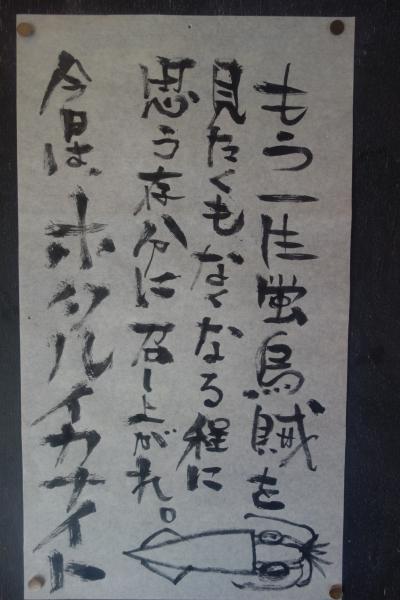 もう一生蛍烏賊を
見たくもなくなる程に
思う存分に召し上がれ。
今日は、ホタルイカナイト